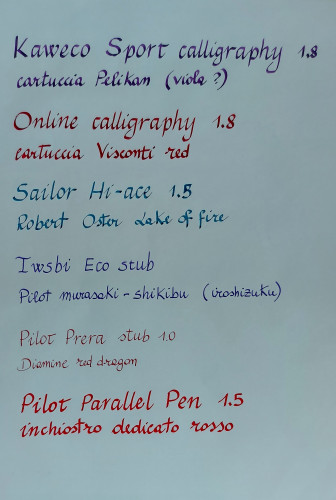 Kaweco Sport calligraphy 1.8
cartuccia Pelikan (viola ?)
Online calligraphy 1.8
cartuccia Visconti red
Sailor Hi-ace 1.5
Robert Oster Lake of fire
Twsbi Eco stub
Pilot murasaki-shikibu (iroshizuku)
Pilot Prera stub 1.0
Diamine red dragon
Pilot Parallel Pen 1.5
inchiostro dedicato rosso